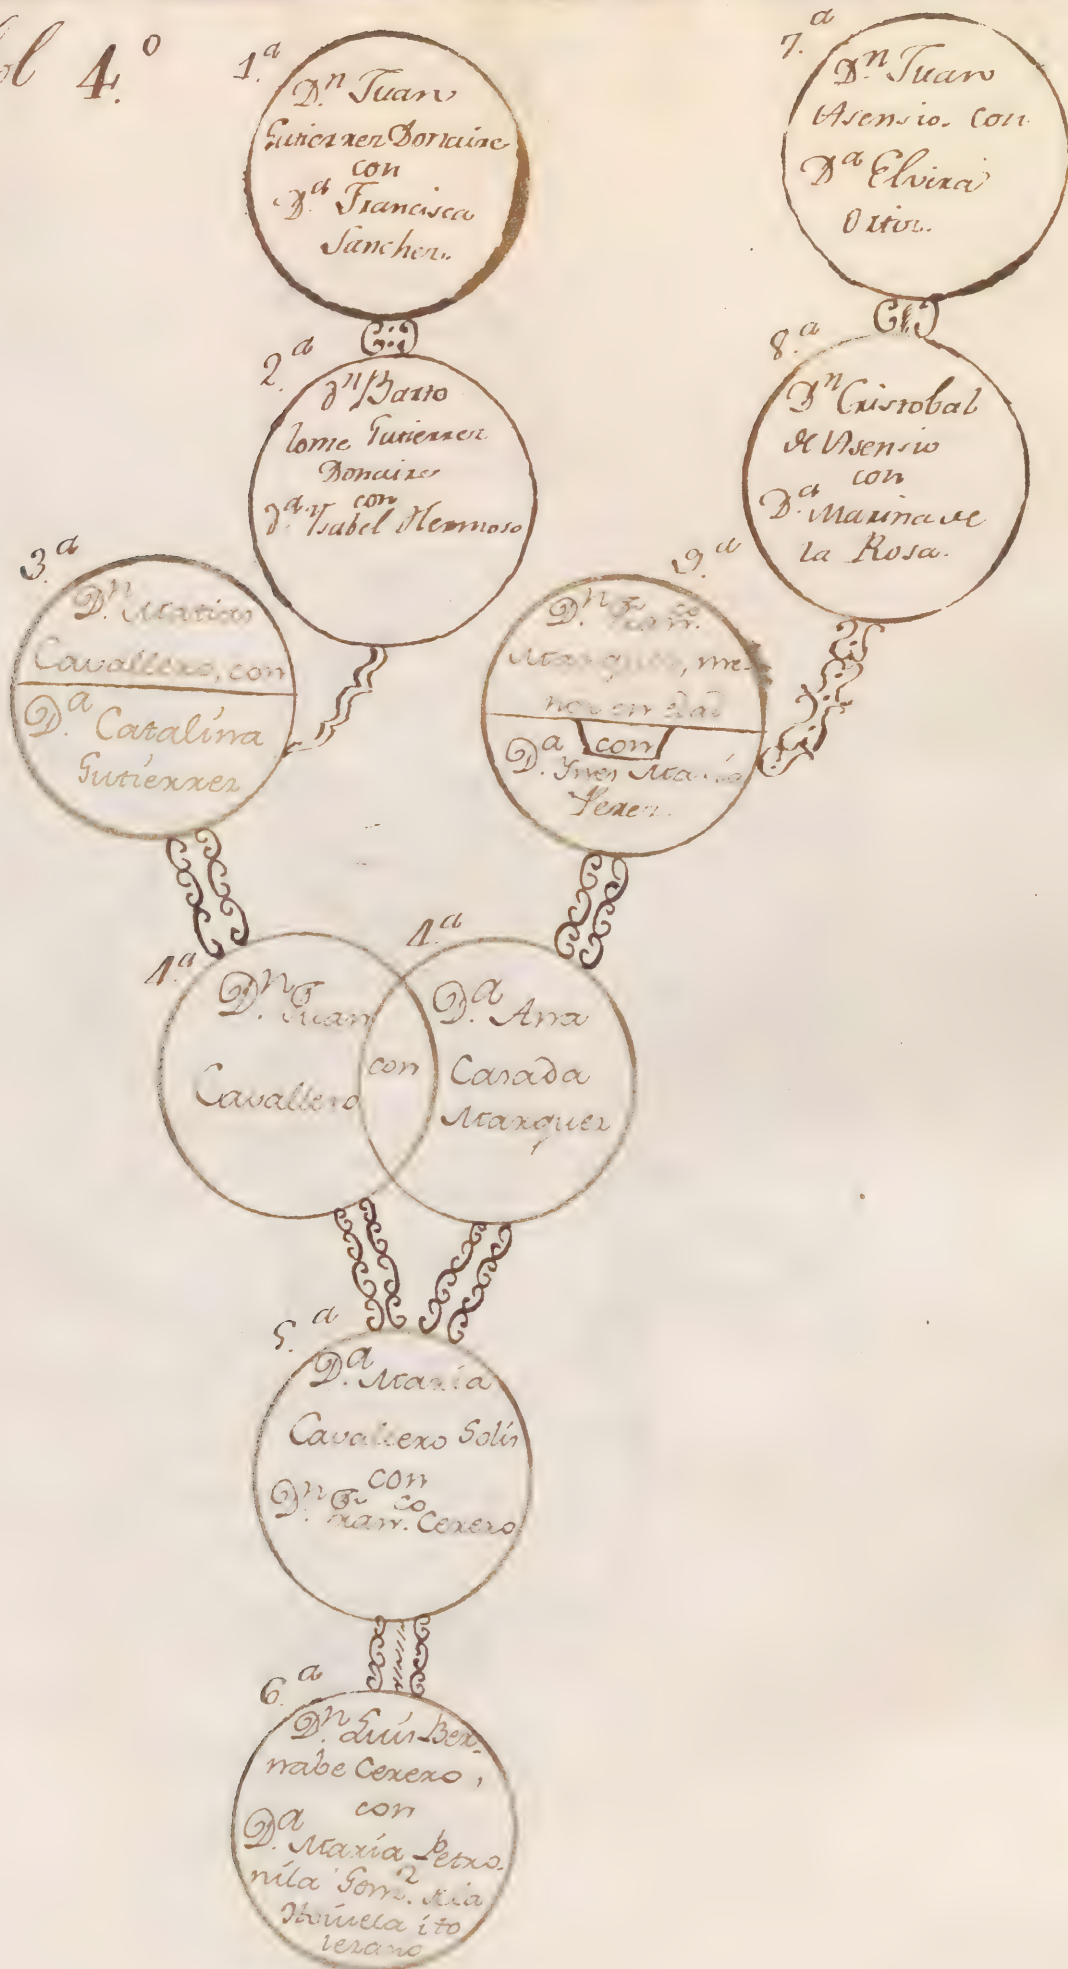 4.º
1.ª
D.ⁿ Juan
Gutierrez Donaire
con
D.ª Francisca
Sanchez.
2.ª
dⁿ Barto
lome Gutierrez
Donaire
con
d.ª Ysabel Hermoso
3.ª
D.ⁿ Matias
Cavallero, con
D.ª Catalina
Gutierrez
7.ª
D.ⁿ Juan
Asensio. con
D.ª Elvira
Ortiz.
8.ª
D.ⁿ Cristobal
de Asensio
con
D.ª Marina de
la Rosa.
9.ª
D.ⁿ Fran.ᶜᵒ
Marquez, me-
nor en edad
con
D.ª Ynes Maria
Perez.
4.ª
D.ⁿ Juan
Cavallero
con
4.ª
D.ª Ana
Casada
Marquez
5.ª
D.ª Maria
Cavallero Solis
con
D.ⁿ Fran.ᶜᵒ Cerero
6.ª
D.ⁿ Luis Ber-
nabe Cerero,
con
D.ª Maria Petro-
nila Gom.ᶻ